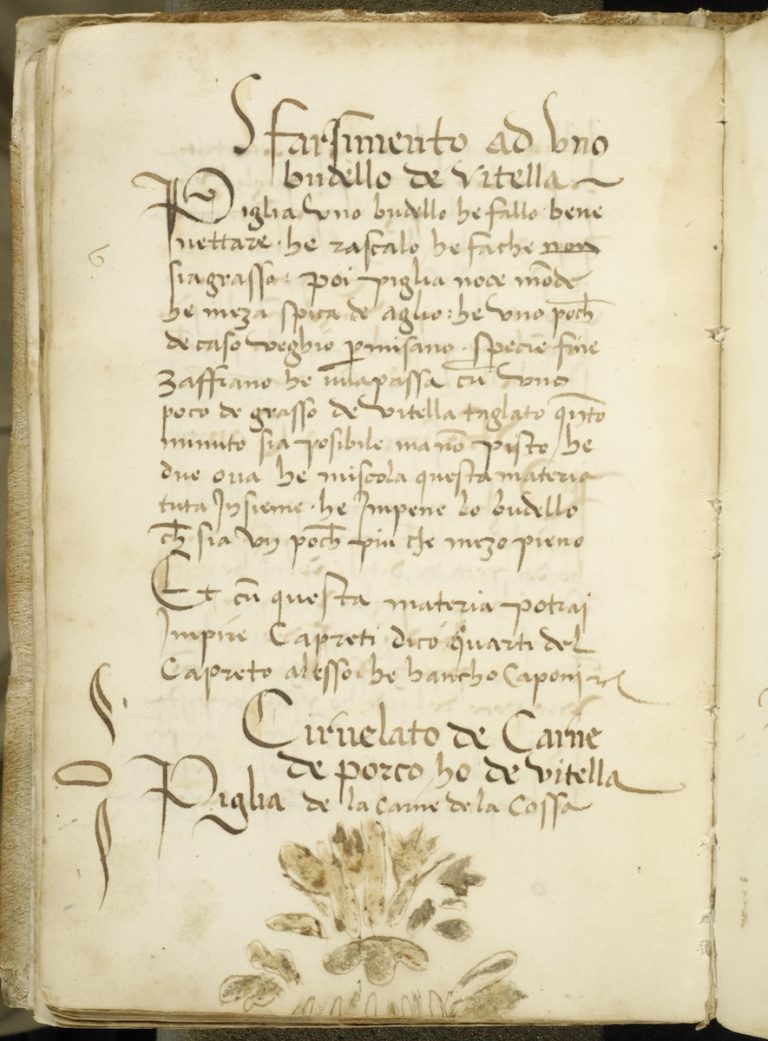 Sfarsimento ad vno
budello de vitella
Piglia vno budello he fallo bene
nettare · he rascalo he fa che non
sia grasso : poi piglia noce mōde
he meza spica de aglio : he vno poch̄
de caso veghio ꝑmisano · specie fine
zaffrano he vuapassa cū vno
poco de grasso de vitella taglato qn̄to
minuto sia posibile ma nō pisto / he
due oua he miscola questa materia
tuta Insieme · he Impene lo budello
ch̄ sia vn poch̄ piu che mezo pieno
Et cū questa materia potraj
Impire Capreti dico quarti del
Capreto alesso · he hancho Caponi
Ciruelato de Carne
de porco ho de vitella
Piglia de la Carne de la Cossa